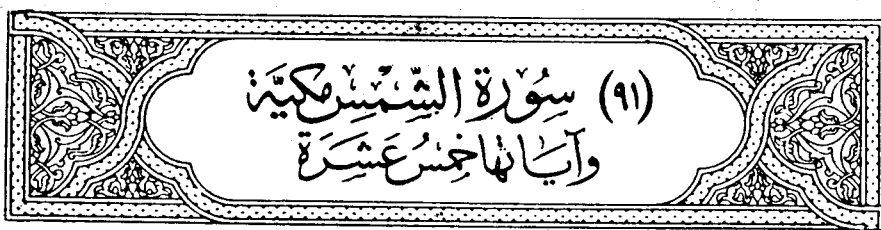 (٩١) سُورَة الشَّمسِ مَكيَّة
وآيَاتها خَمسُ عَشرَة